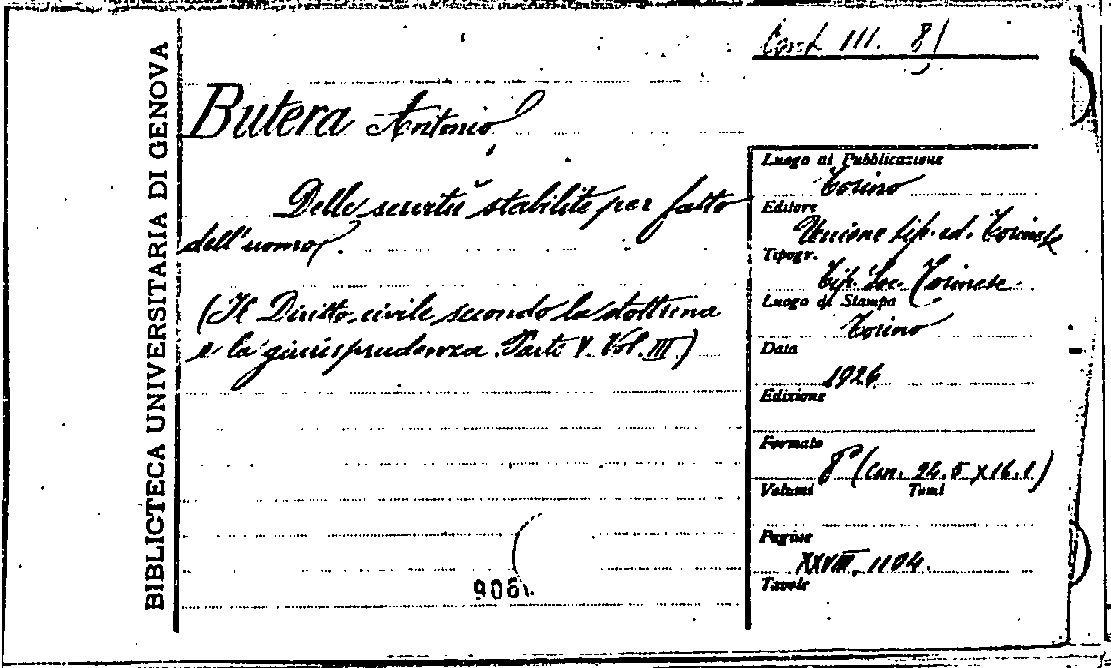 BIBLIOTECA UNIVERSITARIA DI GENOVA
Cont III. 8
Butera Antonio
Delle servitù stabilite per fatto
dell'uomo.
(Il Diritto civile secondo la dottrina
e la giurisprudenza. Parte V. Vol. III)
Luogo di Pubblicazione
Torino
Editore
Unione tip. ed. Torinese
Tipogr.
Tip. Soc. Torinese
Luogo di Stampa
Torino
Data
1926
Edizione
Formato
8° (cm. 24.5 x 16.1)
Volumi Tomi
Pagine
XXVIII, 1104.
Tavole